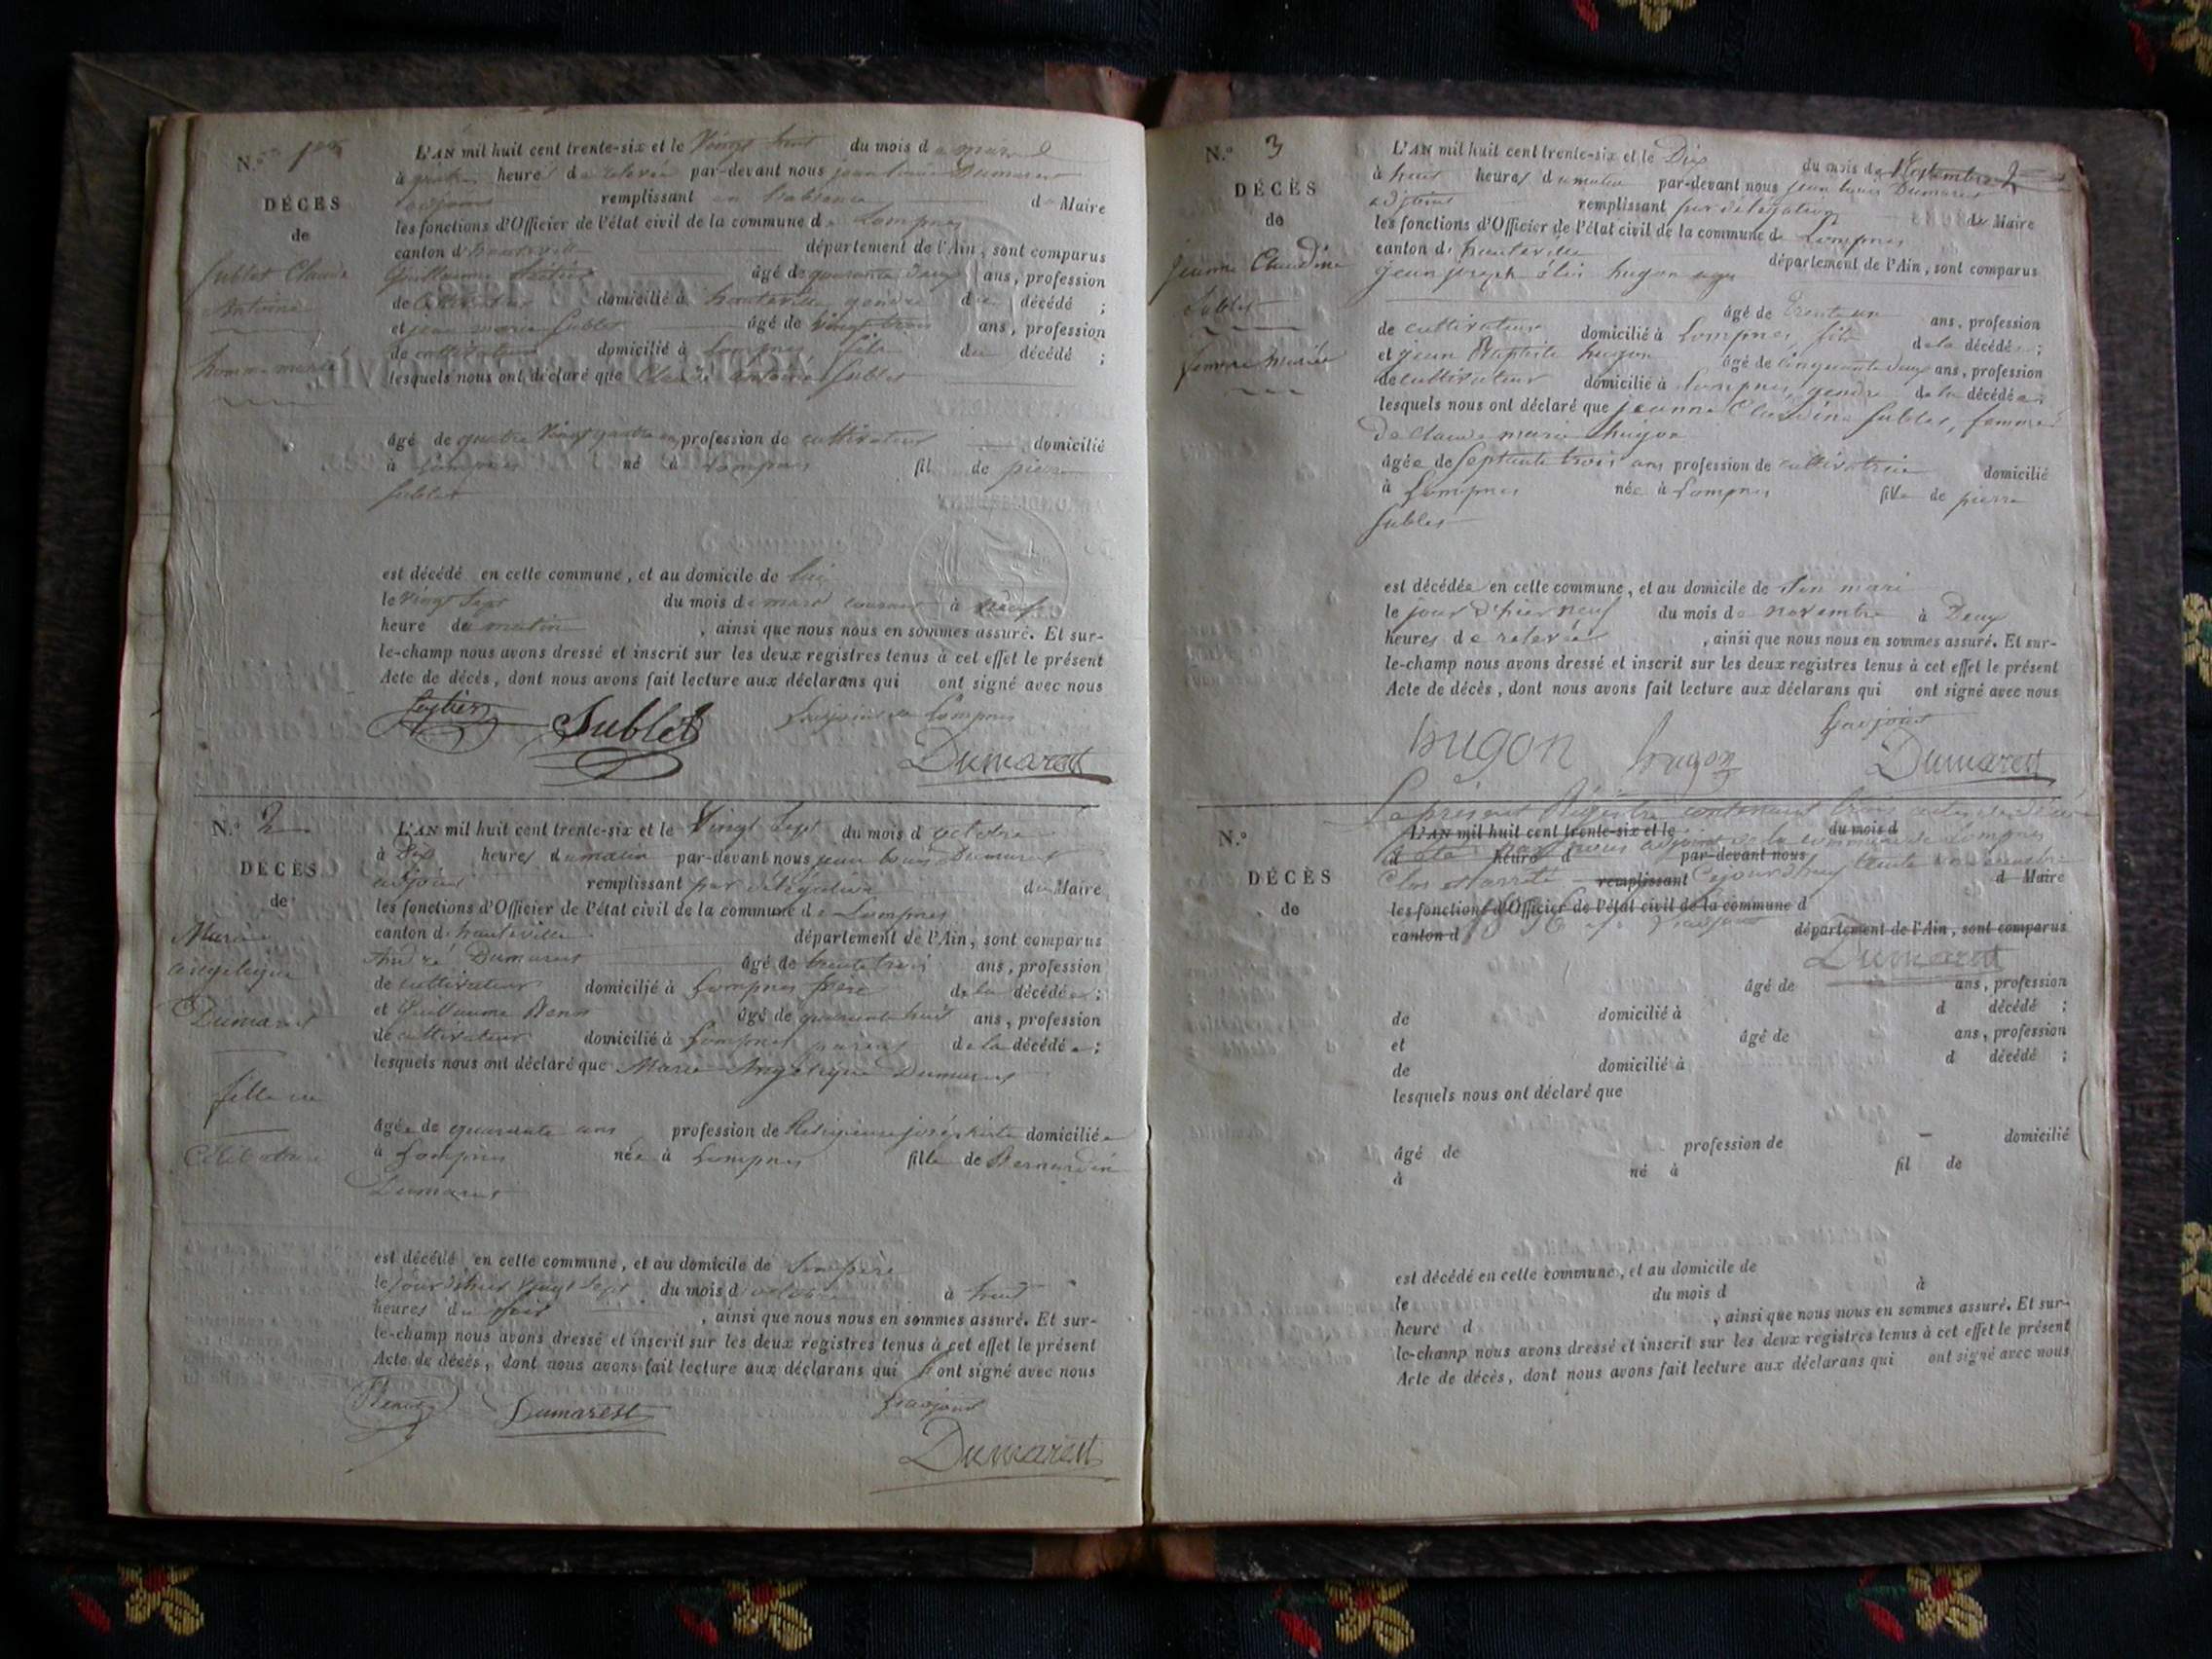 N.º 1er
DÉCÈS
de
Sublet Claude
Antoine
homme marié
L'AN mil huit cent trente-six et le Vingt huit du mois de mars
à quatre heures de relevée par-devant nous jean louis Dumarest
adjoint remplissant en l'absence d Maire
les fonctions d'Officier de l'état civil de la commune de Lompnes
canton d'hauteville département de l'Ain, sont comparus
Guillaume âgé de quarante deux ans, profession
de cultivateur domicilié à hauteville, gendre du décédé ;
et jean marie Sublet âgé de vingt trois ans, profession
de cultivateur domicilié à Lompnes, fils du décédé ;
lesquels nous ont déclaré que Claude antoine Sublet
âgé de quatre Vingt quatre ans, profession de cultivateur domicilié
à Lompnes né à Lompnes fil de pierre
Sublet
est décédé en cette commune, et au domicile de lui
le vingt sept du mois de mars courant à
heure du matin, ainsi que nous nous en sommes assuré. Et sur-
le-champ nous avons dressé et inscrit sur les deux registres tenus à cet effet le présent
Acte de décès, dont nous avons fait lecture aux déclarans qui ont signé avec nous
L'adjoint de Lompnes
Sublet Dumarest
N.º 2
DÉCÈS
de
Marie
angelique
Dumarest
fille
Célibataire
L'AN mil huit cent trente-six et le Vingt Sept du mois d octobre
à dix heures du matin par-devant nous jean louis Dumarest
adjoint remplissant par délégation du Maire
les fonctions d'Officier de l'état civil de la commune de Lompnes
canton d hauteville département de l'Ain, sont comparus
André Dumarest âgé de trente trois ans, profession
de cultivateur domicilié à Lompnes frère de la décédée ;
et Guillaume Benoi âgé de quarante huit ans, profession
de cultivateur domicilié à Lompnes parent de la décédée ;
lesquels nous ont déclaré que Marie Angelique Dumarest
âgée de quarante ans profession de Religieuse joséphiste domiciliée
à Lompnes née à Lompnes fille de Bernardin
Dumarest
est décédé en cette commune, et au domicile de Son père
le vingt Sept du mois d octobre à
heures du, ainsi que nous nous en sommes assuré. Et sur-
le-champ nous avons dressé et inscrit sur les deux registres tenus à cet effet le présent
Acte de décès, dont nous avons fait lecture aux déclarans qui ont signé avec nous
L'adjoint
Dumarest
Dumarest
N.º 3
DÉCÈS
de
jeanne Claudine
Sublet
femme mariée
L'AN mil huit cent trente-six et le Dix du mois de Novembre
à huit heures du matin par-devant nous jean louis Dumarest
adjoint remplissant par délégation du Maire
les fonctions d'Officier de l'état civil de la commune de Lompnes
canton d hauteville département de l'Ain, sont comparus
jean joseph hugon
âgé de trente un ans, profession
de cultivateur domicilié à Lompnes, fils de la décédée ;
et jean Baptiste hugon âgé de cinquante deux ans, profession
de cultivateur domicilié à Lompnes, gendre de la décédée ;
lesquels nous ont déclaré que jeanne Claudine Sublet, femme
de Claude marie hugon
âgée de Septante trois ans profession de cultivatrice domicilié
à Lompnes née à Lompnes fille de pierre
Sublet
est décédée en cette commune, et au domicile de Son mari
le jour d'hier neuf du mois de novembre à Deux
heures de relevée, ainsi que nous nous en sommes assuré. Et sur-
le-champ nous avons dressé et inscrit sur les deux registres tenus à cet effet le présent
Acte de décès, dont nous avons fait lecture aux déclarans qui ont signé avec nous
L'adjoint
hugon hugon Dumarest
Le présent Régistre contenant trois actes de décès
N.º
DÉCÈS
de
L'AN mil huit cent trente-six et le du mois d
a été par nous adjoint de la commune de Lompnes
d heure d par-devant nous
Clos et arreté cejourd'huy trente
remplissant d Maire
les fonctions d'Officier de l'état civil de la commune d
canton d département de l'Ain, sont comparus
Dumarest
âgé de ans, profession
de domicilié à d décédé ;
et âgé de ans, profession
de domicilié à d décédé ;
lesquels nous ont déclaré que
âgé de profession de domicilié
à né à fil de
est décédé en cette commune, et au domicile de
le du mois d à
heure d, ainsi que nous nous en sommes assuré. Et sur-
le-champ nous avons dressé et inscrit sur les deux registres tenus à cet effet le présent
Acte de décès, dont nous avons fait lecture aux déclarans qui ont signé avec nous